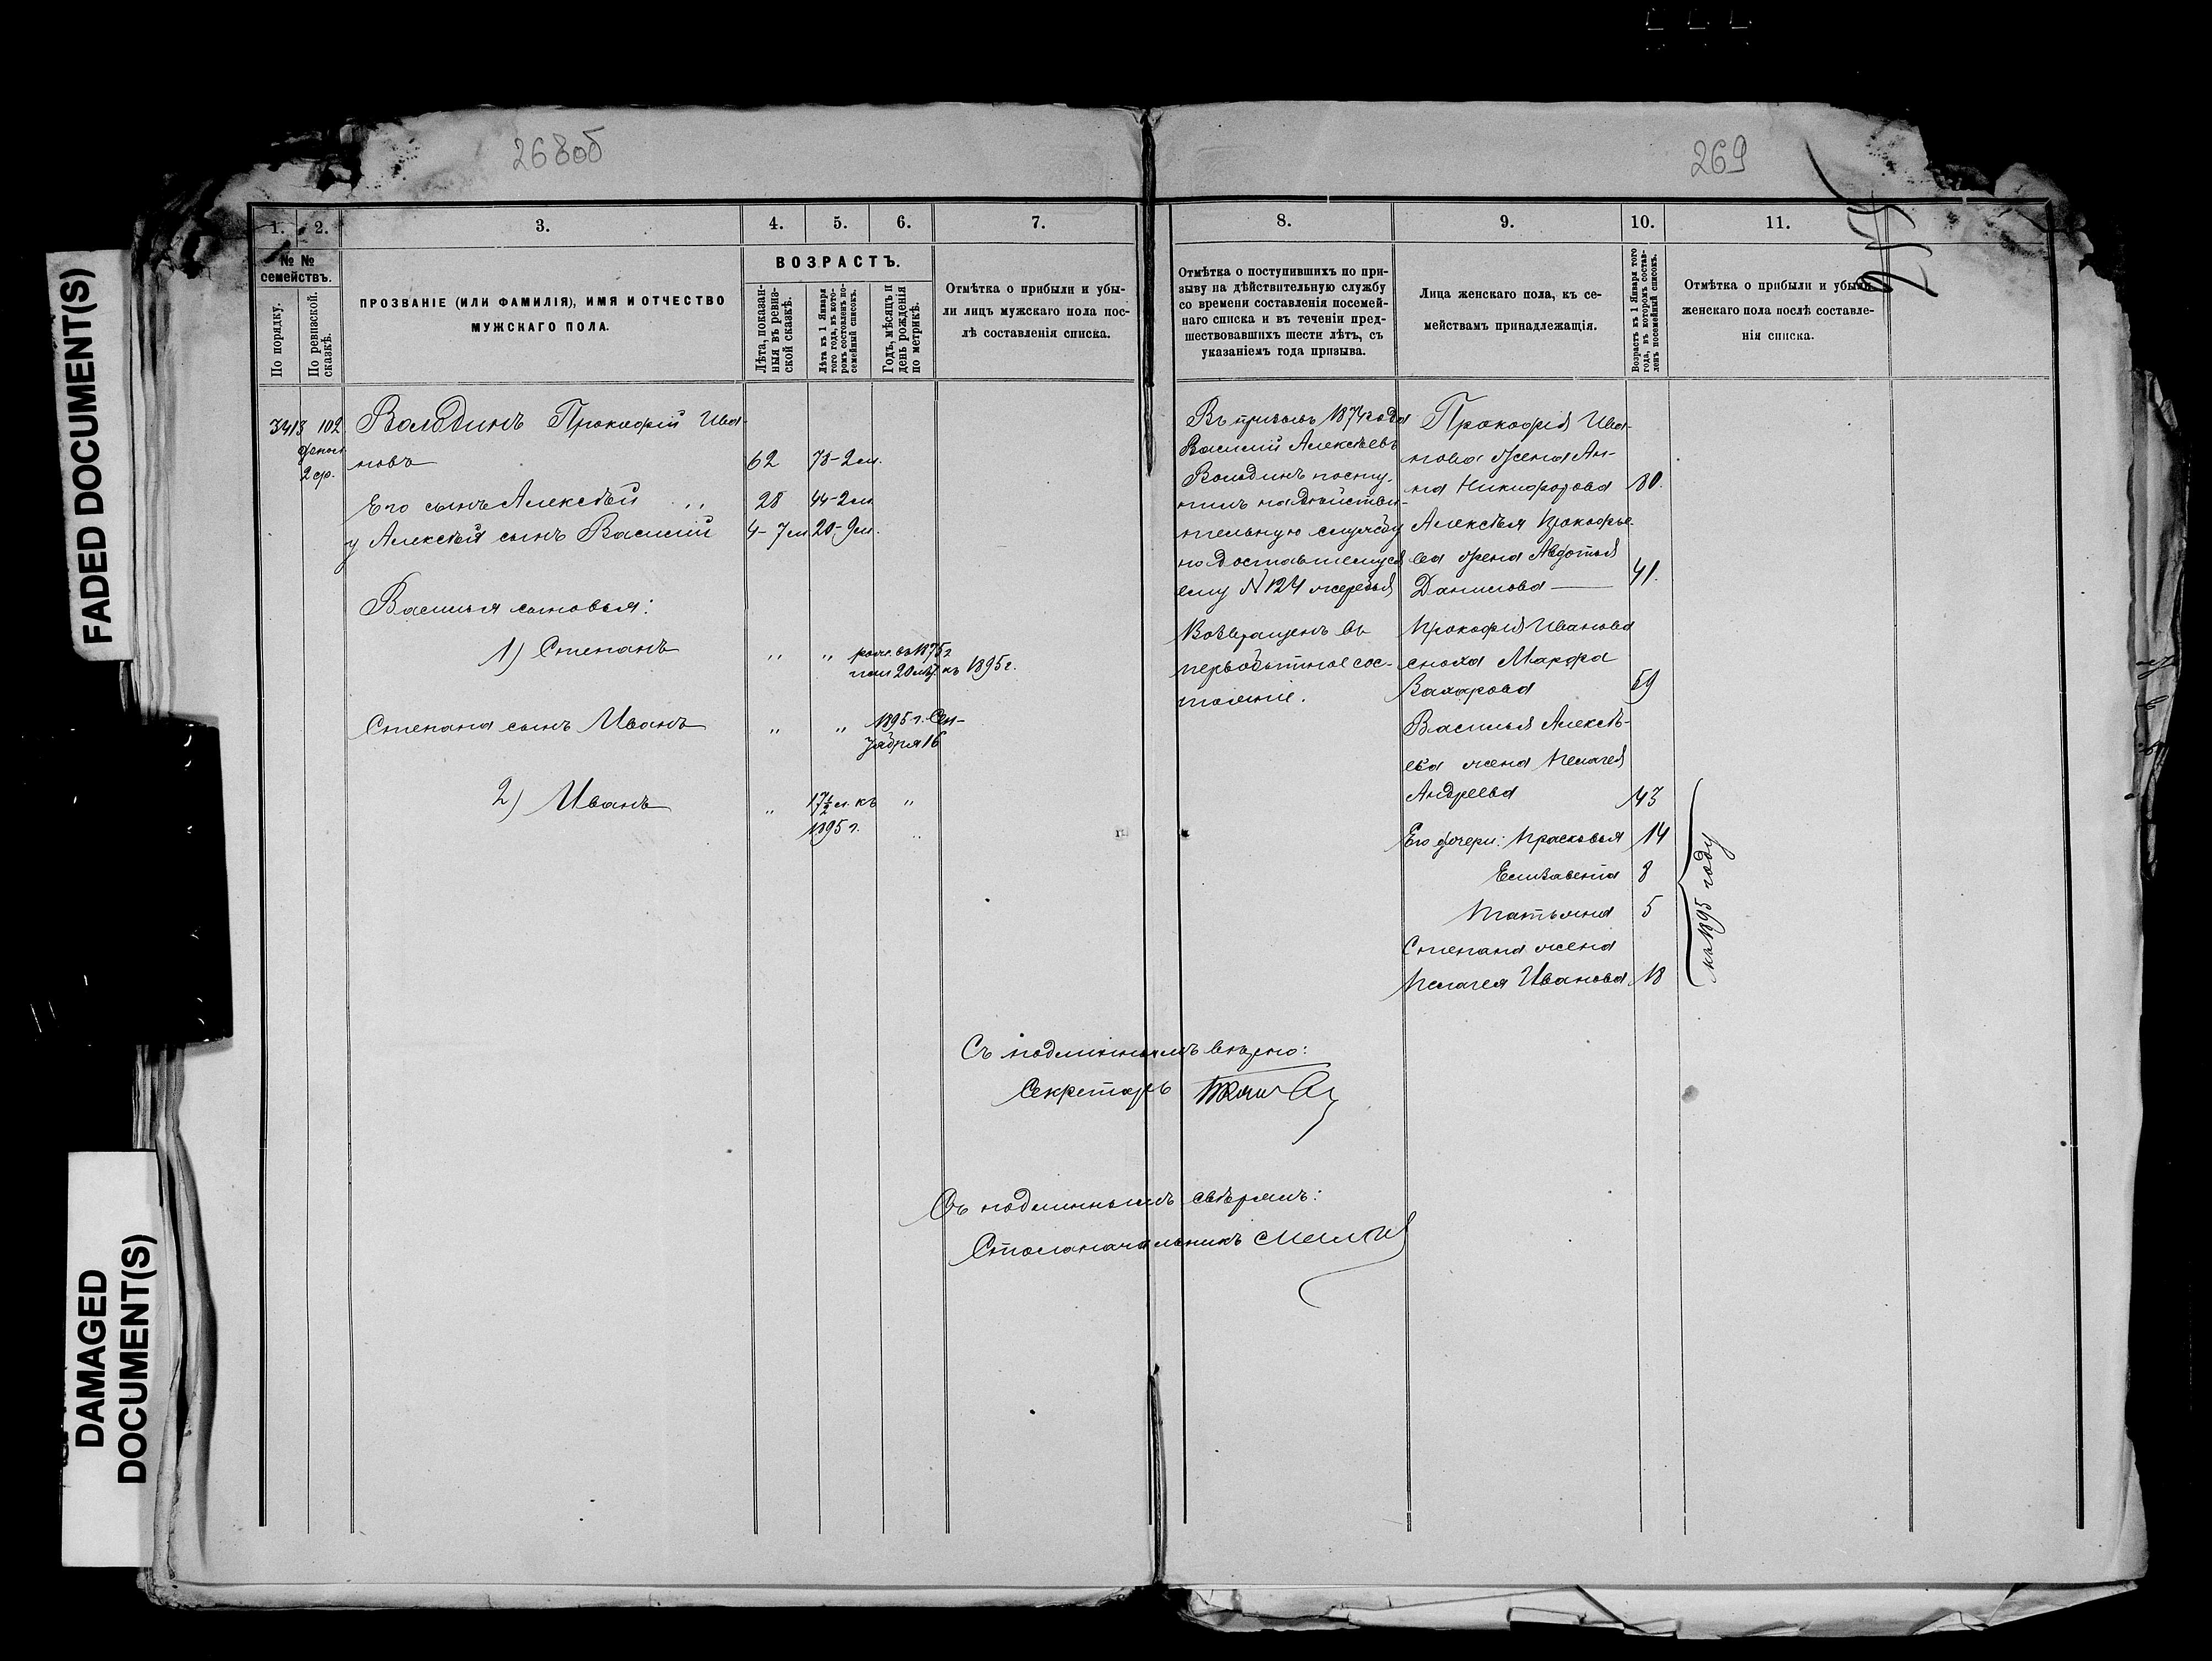 268об
269
257
FADED DOCUMENT(S)
DAMAGED
DOCUMENT(S)
1.
2.
3.
4.
5.
6.
7.
№ №
семействъ.
По порядку.
По ревизской.
сказкѣ.
ПРОЗВАНІЕ (ИЛИ ФАМИЛІЯ), ИМЯ И ОТЧЕСТВО
МУЖСКАГО ПОЛА.
ВОЗРАСТЪ.
Лѣта, показан-
ныя въ ревиз-
ской сказкѣ.
Лѣта къ 1 Января
того года, въ кото-
ромъ составленъ по-
семейный списокъ.
Годъ, мѣсяцъ и
день рожденія
по метрикѣ.
Отмѣтка о прибыли и убы-
ли лицъ мужскаго пола пос-
лѣ составленія списка.
3413 102
2 ср.
Володинъ Прокофій Ива-
новъ 62 73-2 м.
Его сынъ Алексѣй ,, 28 44-2 м.
у Алексѣя сынъ Василій 4-7 м 20-9 м.
Василья сыновья:
1) Степанъ ,, ,, въ 1875 г
20 къ 1895 г.
Степана сынъ Иванъ ,, ,, 1895 г. Сен-
тября 16
2) Иванъ ,, 17½ л. къ ,,
1895 г. ,,
8.
9.
10.
11.
Отмѣтка о поступившихъ по при-
зыву на дѣйствительную службу
со времени составленія посемей-
наго списка и въ теченіи пред-
шествовавшихъ шести лѣтъ, съ
указаніемъ года призыва.
Лица женскаго пола, къ се-
мействамъ принадлежащія.
Возрастъ къ 1 Января того
года, въ которомъ состав-
ленъ посемейный списокъ.
Отмѣтка о прибыли и убыли
женскаго пола послѣ составле-
нія списка.
Въ призывъ 1874 года
Василій Алексѣевъ
Володинъ посту-
пилъ на дѣйстви-
тельную службу
по доставшемуся
ему № 124 жеребья
Возвращенъ въ
первобытное сос-
тояніе.
Прокофія Ива-
нова жена Ан-
на Никифорова 80.
Алексѣя Прокофье-
ва жена Авдотья
Данилова 41.
Прокофія Иванова
сноха Марфа
Захарова 59
Василья Алексѣ-
ева жена Пелагея
Андреева 43
Его дочери: Прасковья 14
Елизавета 8
Татьяна 5
Степана жена
Пелагея Иванова 18
на 1895 году
Съ подлиннымъ вѣрно:
Секретарь
Съ подлиннымъ свѣрялъ:
Столоначальникъ